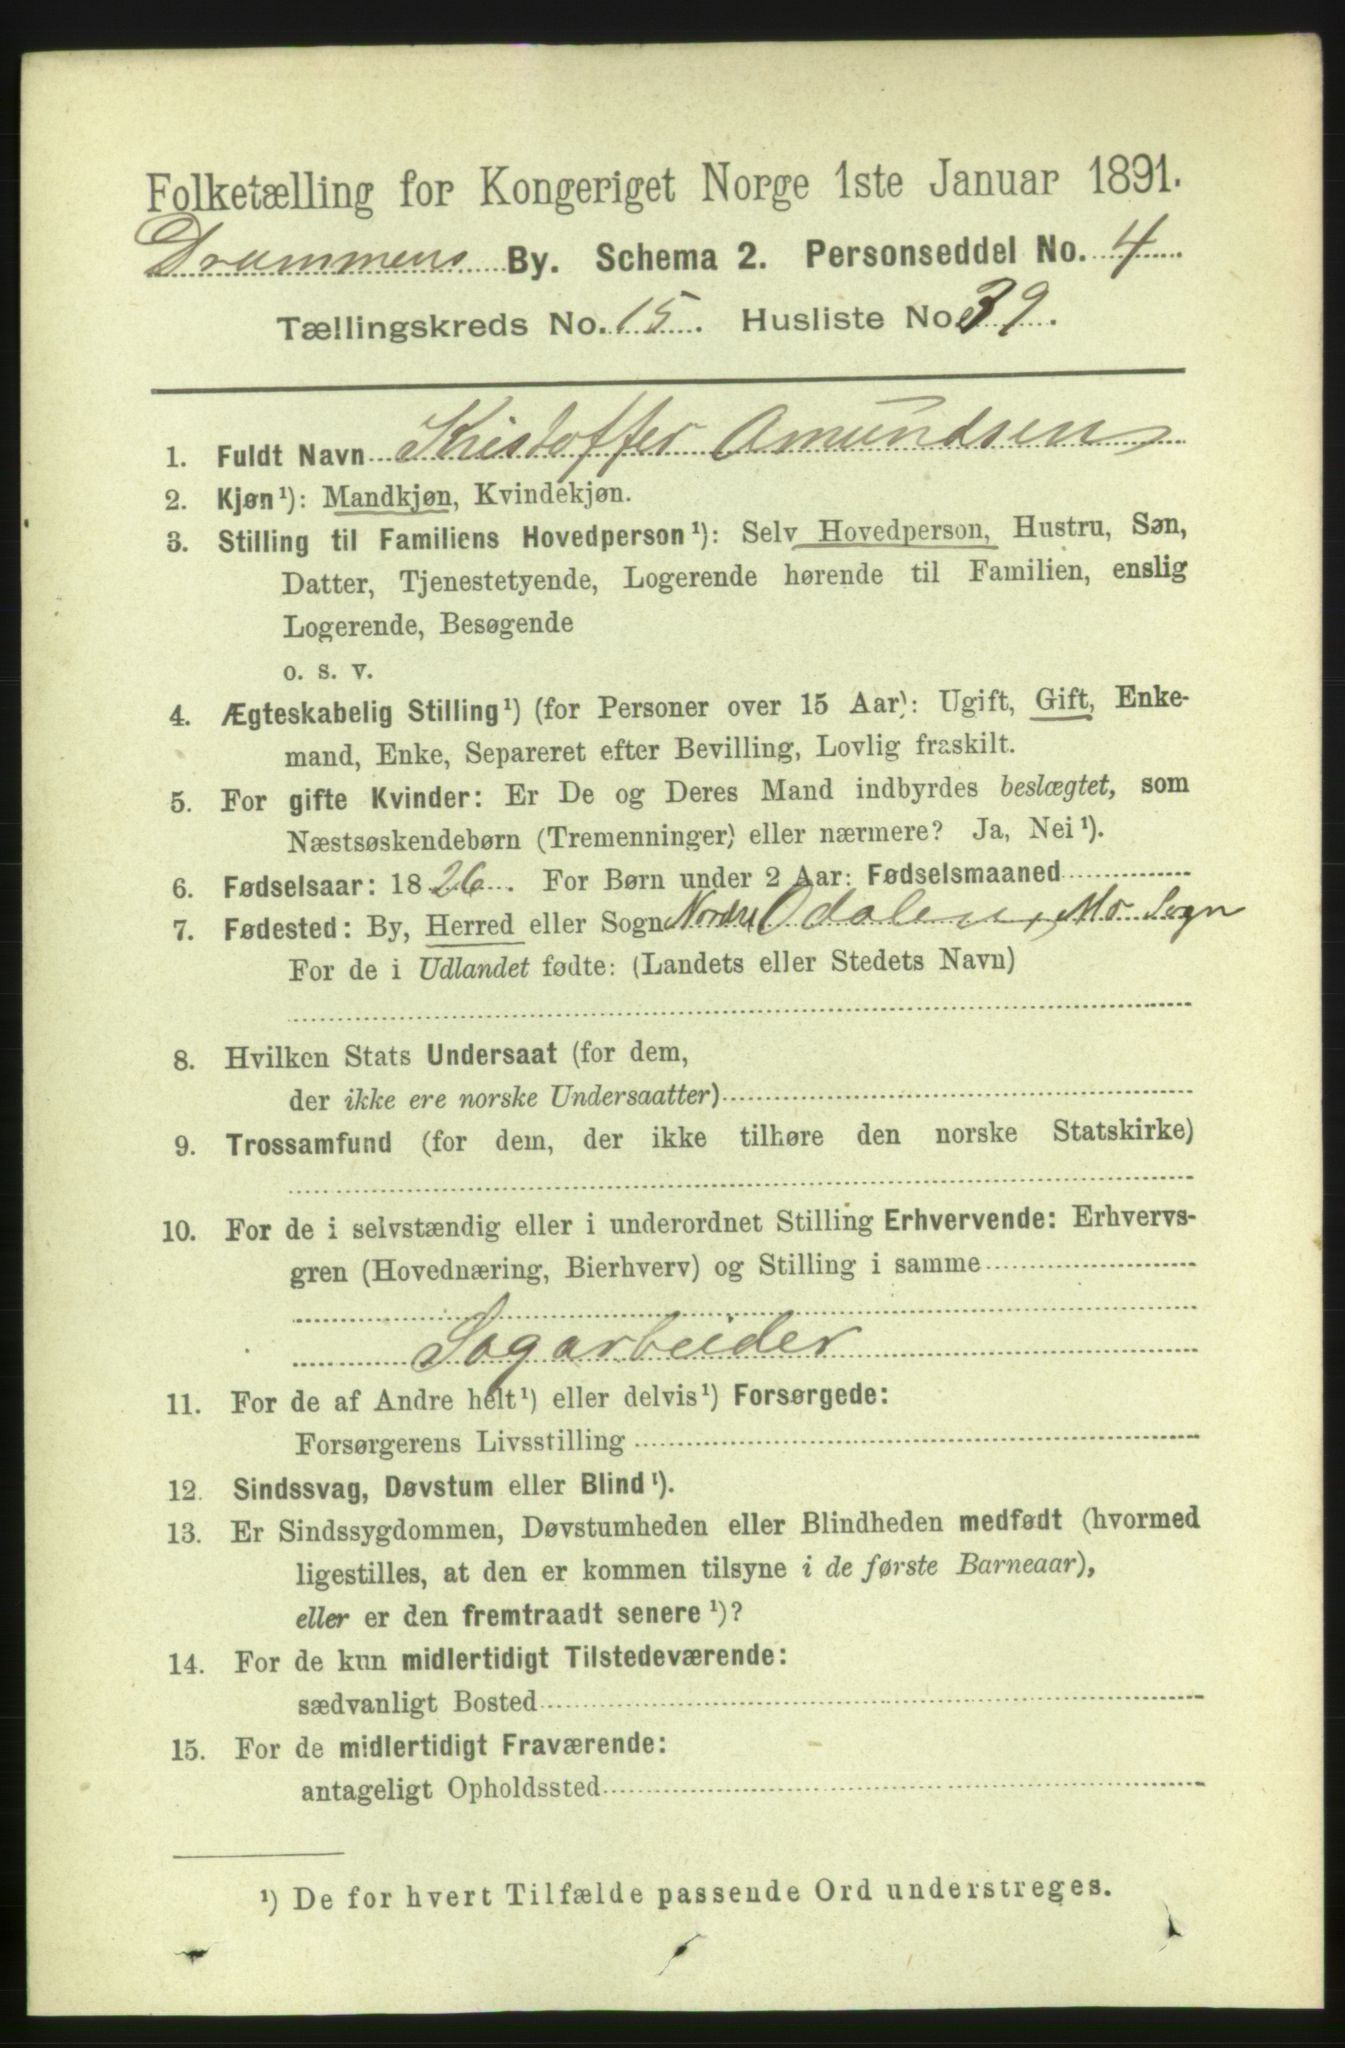 Folketælling for Kongeriget Norge 1ste Januar 1891.
Drammens By. Schema 2. Personseddel No. 4
Tællingskreds No. 15. Husliste No. 39.
1. Fuldt Navn Kristoffer Amundsen
2. Kjøn¹): Mandkjøn, Kvindekjøn.
3. Stilling til Familiens Hovedperson¹): Selv Hovedperson, Hustru, Søn,
Datter, Tjenestetyende, Logerende hørende til Familien, enslig
Logerende, Besøgende
o. s. v.
4. Ægteskabelig Stilling¹) (for Personer over 15 Aar): Ugift, Gift, Enke-
mand, Enke, Separeret efter Bevilling, Lovlig fraskilt.
5. For gifte Kvinder: Er De og Deres Mand indbyrdes beslægtet, som
Næstsøskendebørn (Tremenninger) eller nærmere? Ja, Nei¹).
6. Fødselsaar: 1826. For Børn under 2 Aar: Fødselsmaaned
7. Fødested: By, Herred eller Sogn Nordre Odalen, Mo Sogn
For de i Udlandet fødte: (Landets eller Stedets Navn)
8. Hvilken Stats Undersaat (for dem,
der ikke ere norske Undersaatter)
9. Trossamfund (for dem, der ikke tilhøre den norske Statskirke)
10. For de i selvstændig eller i underordnet Stilling Erhvervende: Erhvervs-
gren (Hovednæring, Bierhverv) og Stilling i samme
Sagarbeider
11. For de af Andre helt¹) eller delvis¹) Forsørgede:
Forsørgerens Livsstilling
12. Sindssvag, Døvstum eller Blind¹).
13. Er Sindssygdommen, Døvstumheden eller Blindheden medfødt (hvormed
ligestilles, at den er kommen tilsyne i de første Barneaar),
eller er den fremtraadt senere¹)?
14. For de kun midlertidigt Tilstedeværende:
sædvanligt Bosted
15. For de midlertidigt Fraværende:
antageligt Opholdssted
¹) De for hvert Tilfælde passende Ord understreges.